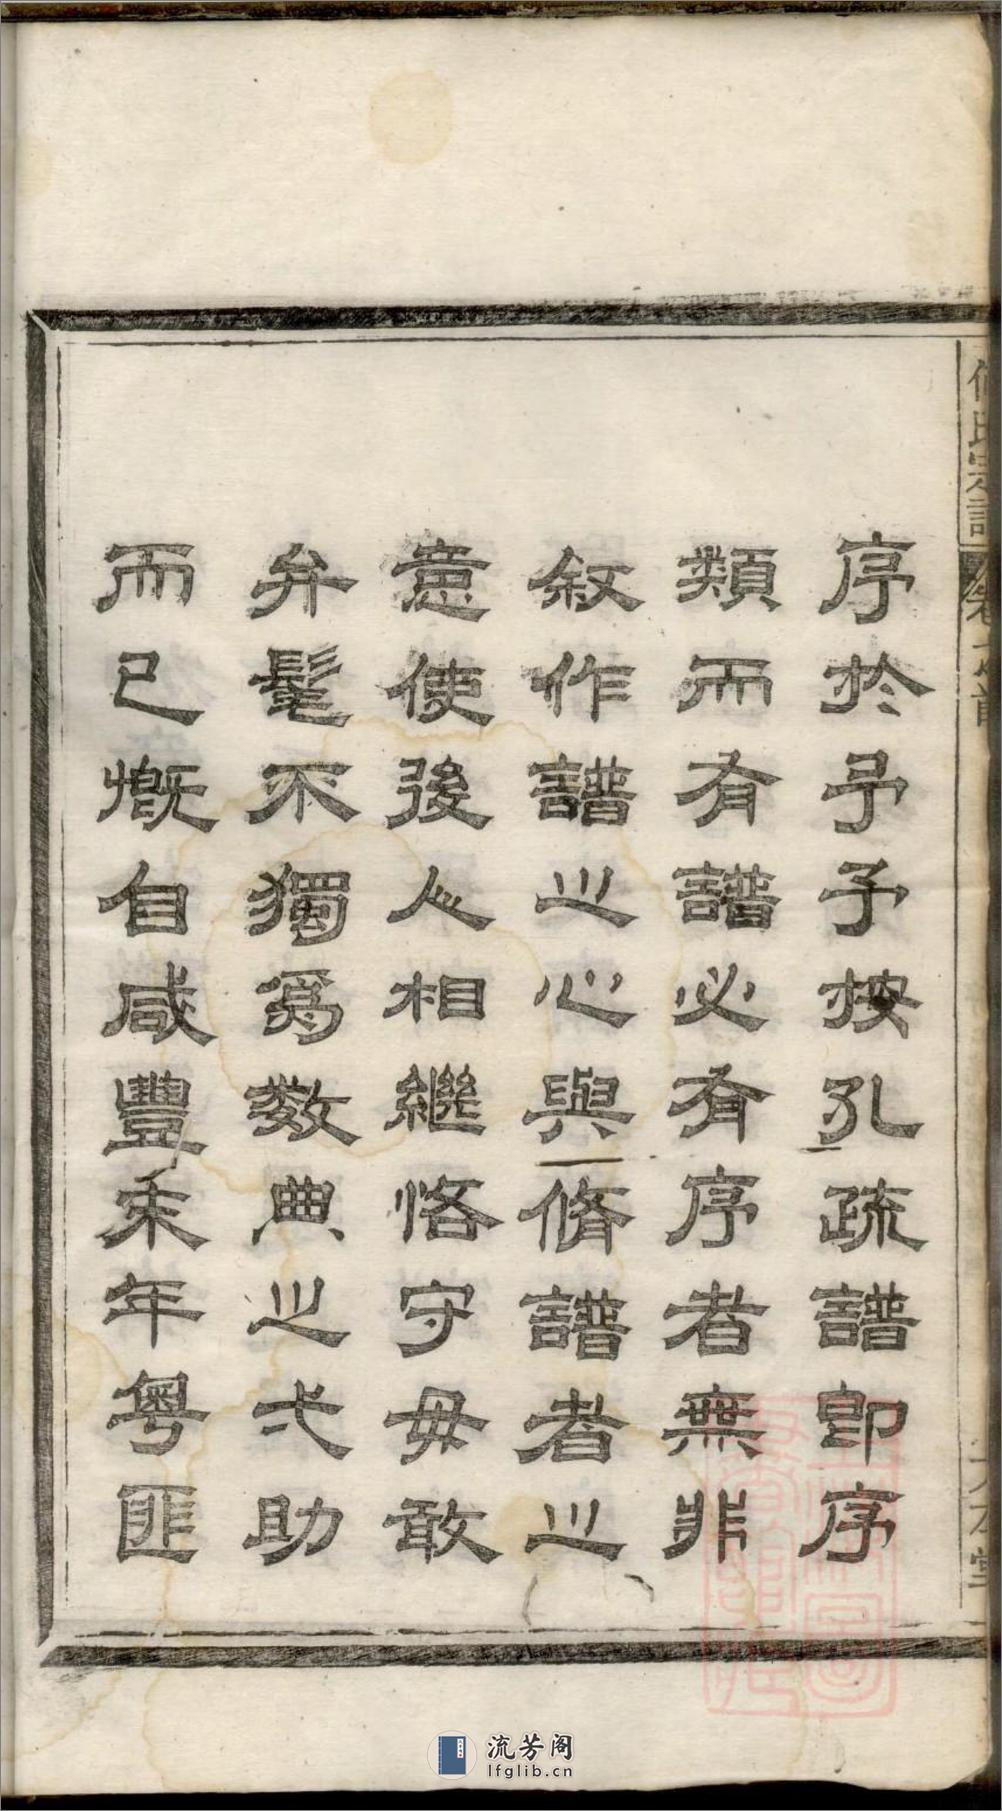 序於予予按孔疏譜即序
類而有譜必有序者無非
敘作譜之心與脩譜者之
意使後人相繼恪守毋敢
弁髦不獨為數典之弌助
而已慨自咸豐末年粵匪
流芳阁
lfglib.cn